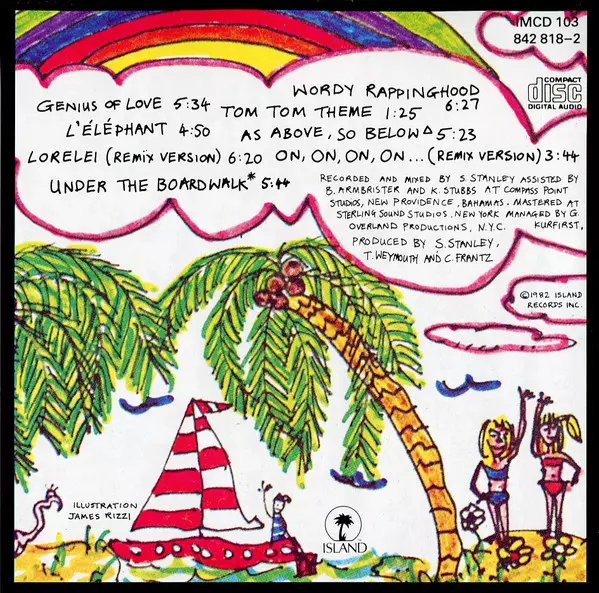 IMCD 103
842 818-2
COMPACT
disc
DIGITAL AUDIO
WORDY RAPPINGHOOD
6:27
GENIUS OF LOVE 5:34
TOM TOM THEME 1:25
L'ÉLÉPHANT 4:50
AS ABOVE, SO BELOW∆ 5:23
LORELEI (REMIX VERSION) 6:20
ON, ON, ON, ON... (REMIX VERSION) 3:44
UNDER THE BOARDWALK* 5:44
RECORDED AND MIXED BY S. STANLEY ASSISTED BY
B. ARMBRISTER AND K. STUBBS AT COMPASS POINT
STUDIOS, NEW PROVIDENCE, BAHAMAS. MASTERED AT
STERLING SOUND STUDIOS, NEW YORK MANAGED BY G.
OVERLAND PRODUCTIONS, N.Y.C. KURFIRST,
PRODUCED BY S. STANLEY,
T. WEYMOUTH AND C. FRANTZ
©1982 ISLAND
RECORDS INC.
ILLUSTRATION
JAMES RIZZI
ISLAND